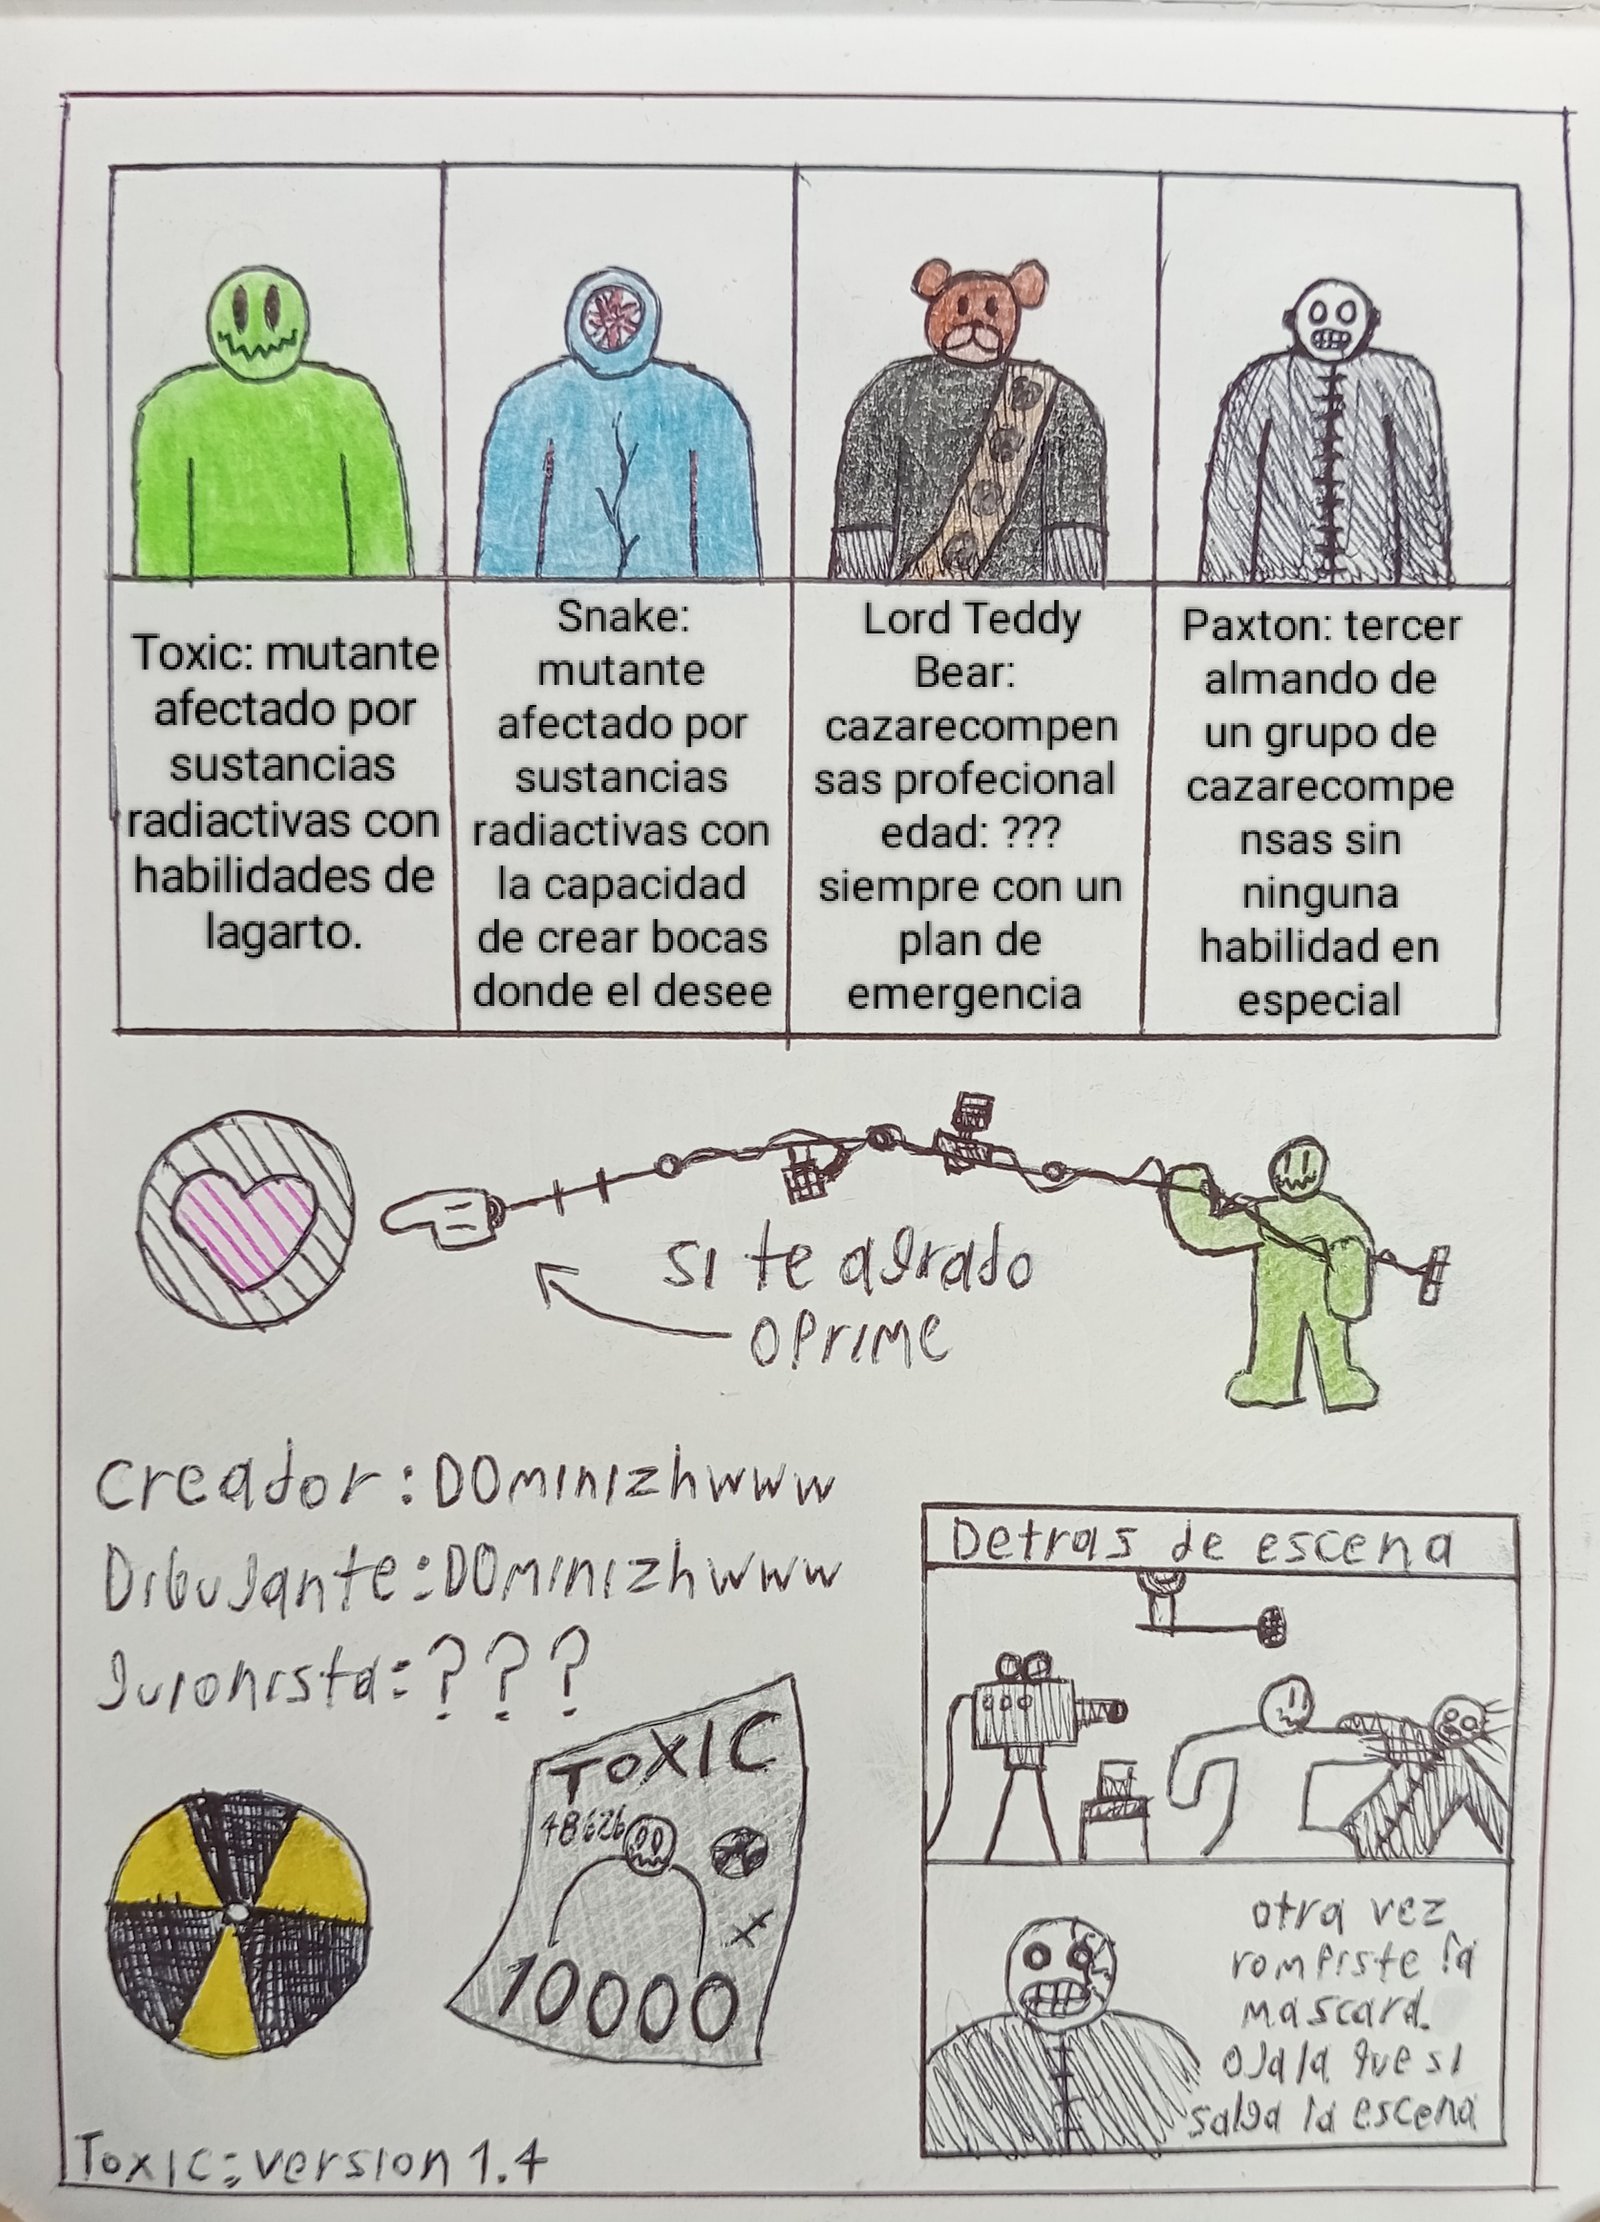 Toxic: mutante
afectado por
sustancias
radiactivas con
habilidades de
lagarto.
Snake:
mutante
afectado por
sustancias
radiactivas con
la capacidad
de crear bocas
donde el desee
Lord Teddy
Bear:
cazarecompen
sas profecional
edad: ???
siempre con un
plan de
emergencia
Paxton: tercer
almando de
un grupo de
cazarecompe
nsas sin
ninguna
habilidad en
especial
si te agrado
oprime
creador: DOminizhwww
Dibujante: DOminizhwww
guionista: ???
TOXIC
48626
10000
Detras de escena
otra vez
rompiste la
mascara.
ojala que si
salga la escena
Toxic: version 1.4